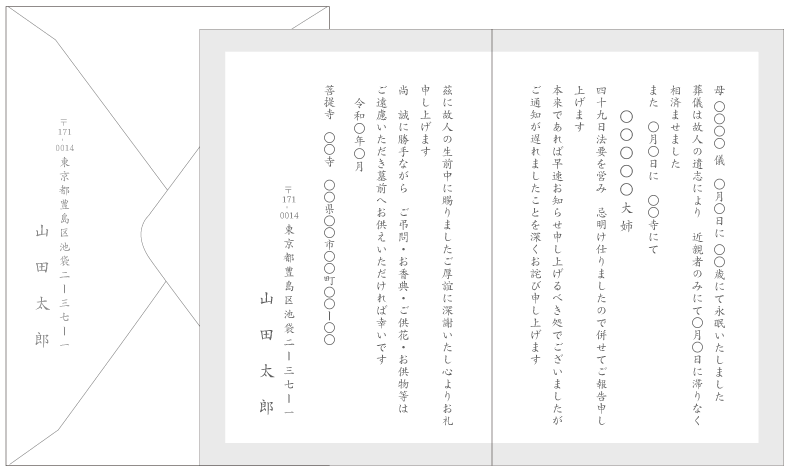 母 〇〇〇〇 儀 〇月〇日に 〇〇歳にて永眠いたしました
葬儀は故人の遺志により 近親者のみにて〇月〇日に滞りなく
相済ませました
また 〇月〇日に 〇〇寺にて
〇〇〇〇〇大姉
四十九日法要を営み 忌明け仕りましたので併せてご報告申し
上げます
本来であれば早速お知らせ申し上げるべき処でございましたが
ご通知が遅れましたことを深くお詫び申し上げます
茲に故人の生前中に賜りましたご厚誼に深謝いたし心よりお礼
申し上げます
尚 誠に勝手ながら ご弔問・お香典・ご供花・お供物等は
ご遠慮いただき墓前へお供えいただければ幸いです
令和〇年〇月
菩提寺 〇〇寺 〇〇県〇〇市〇〇町〇〇ー〇〇
〒171-0014 東京都豊島区池袋二ー三七ー一
山田太郎
〒171-0014 東京都豊島区池袋二ー三七ー一
山田太郎